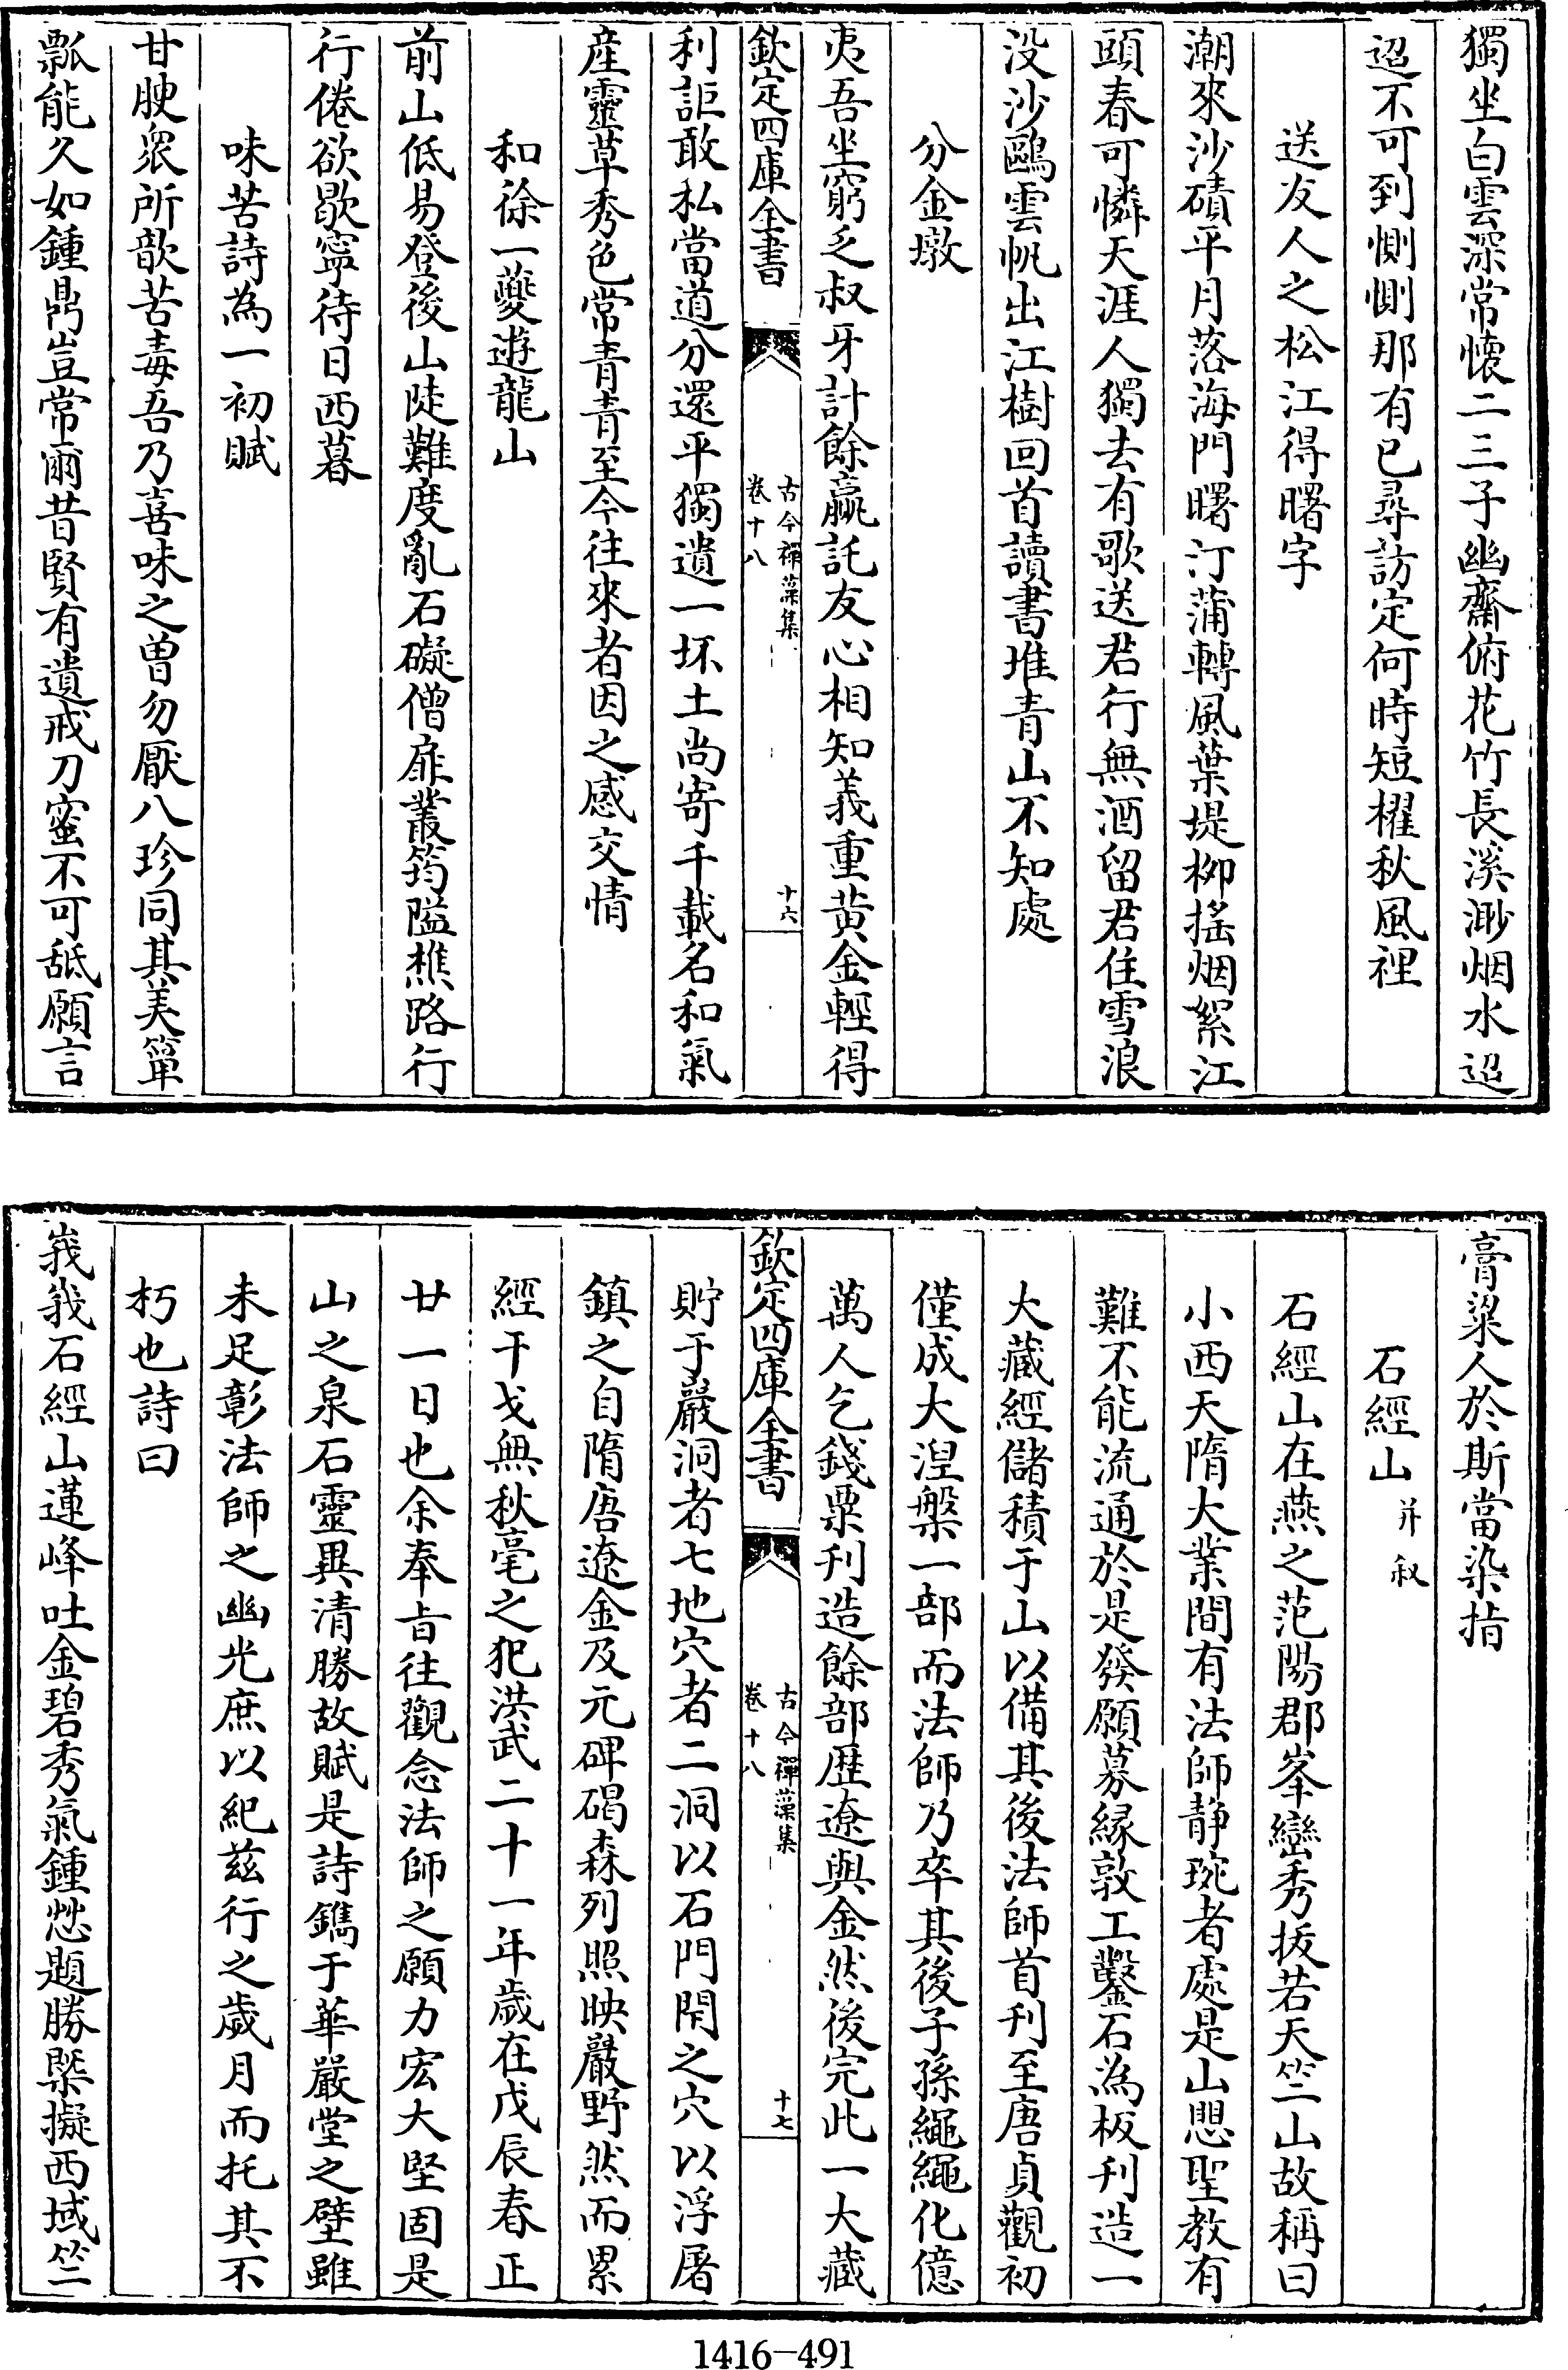 獨坐白雲深常懷二三子幽齋俯花竹長溪渺烟水迢
迢不可到惻惻那有已尋訪定何時短櫂秋風裡
送友人之松江得曙字
潮來沙磧平月落海門曙汀蒲轉風葉堤柳搖烟絮江
頭春可憐天涯人獨去有歌送君行無酒留君住雪浪
没沙鷗雲帆出江樹回首讀書堆青山不知處
分金墩
夷吾坐窮乏叔牙計餘贏託友心相知義重黄金輕得
欽定四庫全書
古今禪藻集
卷十八
十六
利詎敢私當道分還平獨遺一坏土尚寄千載名和氣
産靈草秀色常青青至今往來者因之感交情
和徐一夔遊龍山
前山低易登後山陡難度亂石礙僧扉叢筠隘樵路行
行倦欲歇寧待日西暮
味苦詩為一初賦
甘腴衆所歆苦毒吾乃喜味之曾勿厭八珍同其美簞
瓢能久如鍾鼎豈常爾昔賢有遺戒刀蜜不可舐願言
膏粱人於斯當染指
石經山并叙
石經山在燕之范陽郡峯巒秀拔若天竺山故稱曰
小西天隋大業間有法師静琬者處是山愳聖教有
難不能流通於是發願募縁敦工鑿石為板刋造一
大藏經儲積于山以備其後法師首刋至唐貞觀初
僅成大湼槃一部而法師乃卒其後子孫繩繩化億
萬人乞錢粟刋造餘部歴遼與金然後完此一大藏
欽定四庫全書
古今禪藻集
卷十八
十七
貯于巖洞者七地穴者二洞以石門閇之穴以浮屠
鎮之自隋唐遼金及元碑碣森列照映巖野然而累
經干戈無秋毫之犯洪武二十一年歲在戊辰春正
廿一日也余奉旨往觀念法師之願力宏大堅固是
山之泉石靈異清勝故賦是詩鐫于華嚴堂之壁雖
未足彰法師之幽光庶以紀兹行之歲月而托其不
朽也詩曰
峩峩石經山蓮峰吐金碧秀氣鍾㥶題勝槩擬西域竺
1416-491